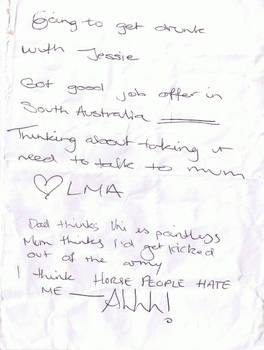 Going to get drunk
with Jessie
Got good job offer in
South Australia
Thinking about taking it
need to talk to mum
♡ LMA
Dad thinks this is pointless
Mum thinks I'd get kicked
out of the army
I think HORSE PEOPLE HATE
ME — Ahhh!